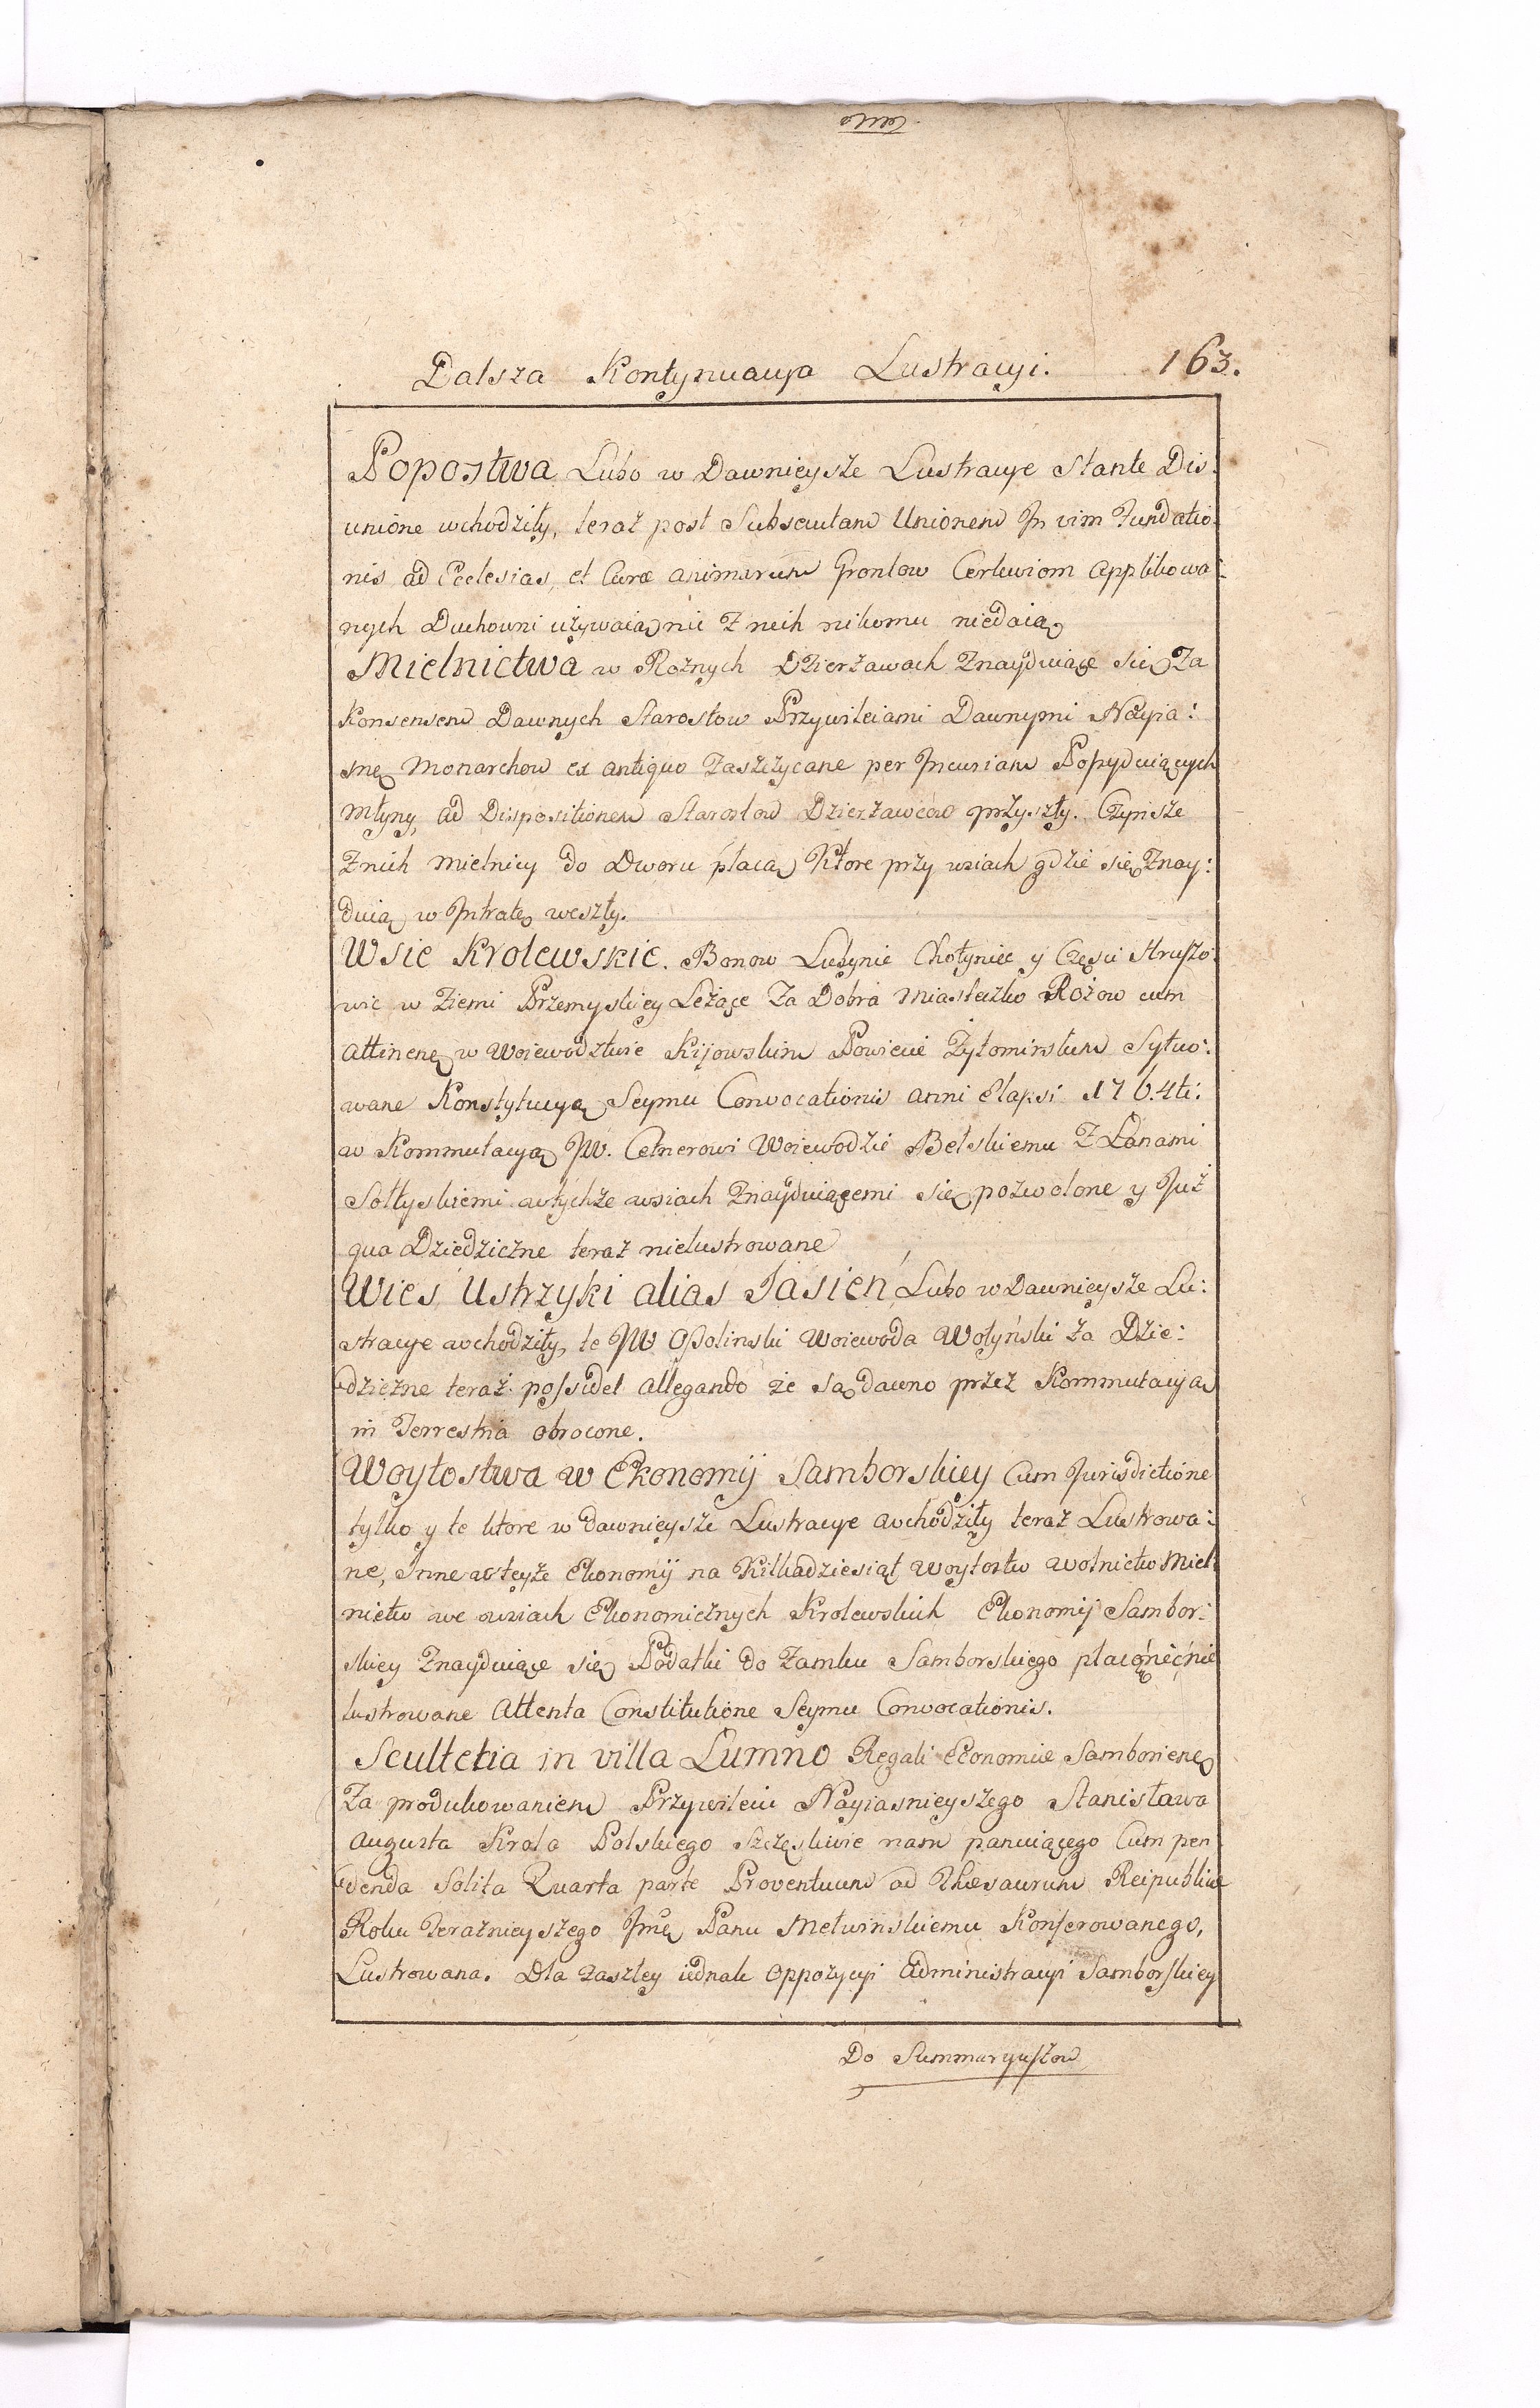 Dalsza Kontynuacya Lustracyi. 163.
Popostwa Lubo w Dawnieysze Lustracye stante Dis:
unione wchodziły, teraz post Subsecutam Unionem In vim Fundatio:
nis ad Ecclesias, et Curæ animarum Grontow Cerkwiom applikowa:
nych Duchowni używaią nic z nich nikomu niedaią
Mielnictwa w Rożnych Dzierżawach Znayduiące się Za
Konsensem Dawnych Starostow Przywileiami Dawnymi Nayia:
snę Monarchow ex antiquo Zaszczycane per Incuriam Popyduiących
Młyny, ad Dispositionem Starostow Dzierżawcow przyszły. Czynsze
Znich Mielnicy do Dworu płacą Ktore przy wsiach gdzie się Znay:
duią w Intratę weszły.
Wsie Krolewskie. Bonow Lubynie Chotyniec y Części Hruszo:
wic w Ziemi Przemyskiey Leżące Za Dobra Miasteczko Rożow cum
attinenę w Woiewodztwie Kijowskim Powiecie Żytomirskim Sytuo:
wane Konstytucyą Seymu Convocationis anni Elapsi 1764ti:
w Kommutacyą JW. Cetnerowi Woiewodzie Bełskiemu Z Łanami
Sołtyskiemi wtychże wsiach Znayduiącemi się pozwolone y Już
qua Dziedziczne teraz nielustrowane
Wieś Ustrzyki alias Jasień, Lubo w Dawnieysze Lu:
stracye wchodziły, te JW Ossolinski Woiewoda Wołyński za Dzie:
dziczne teraz possidet allegando że są dawno przez Kommutacyą
in Terrestria obrocone.
Woytostwa w Ekonomij Samborskiey Cum Jurisdictione
tylko y te ktore w dawnieysze Lustracye wchodziły teraz Lustrowa:
ne, Inne w teyże Ekonomij na Kilkadziesiąt Woytostw Wolnictw Miel:
nictw we wsiach Ekonomicznych Krolewskich Ekonomij Sambor:
skiey Znayduiące się Podatki do Zamku Samborskiego
lustrowane Attenta Constitutione Seymu Convocationis.
Scultetia in villa Łumno Regali Economiæ Samborienę
Za produkowaniem Przywileiu Nayiasnieyszego Stanisława
Augusta Krola Polskiego szczęsliwie nam panuiącego Cum pen
denda Solita Quarta parte Proventuum ad Thesaurum Reipublicæ
Roku Teraznieyszego Jmę Panu Metwinskiemu Konferowanego,
Lustrowana. Dla zaszłey iednak Oppozycyi Administracyi Samborskiey
Do Summaryuszow